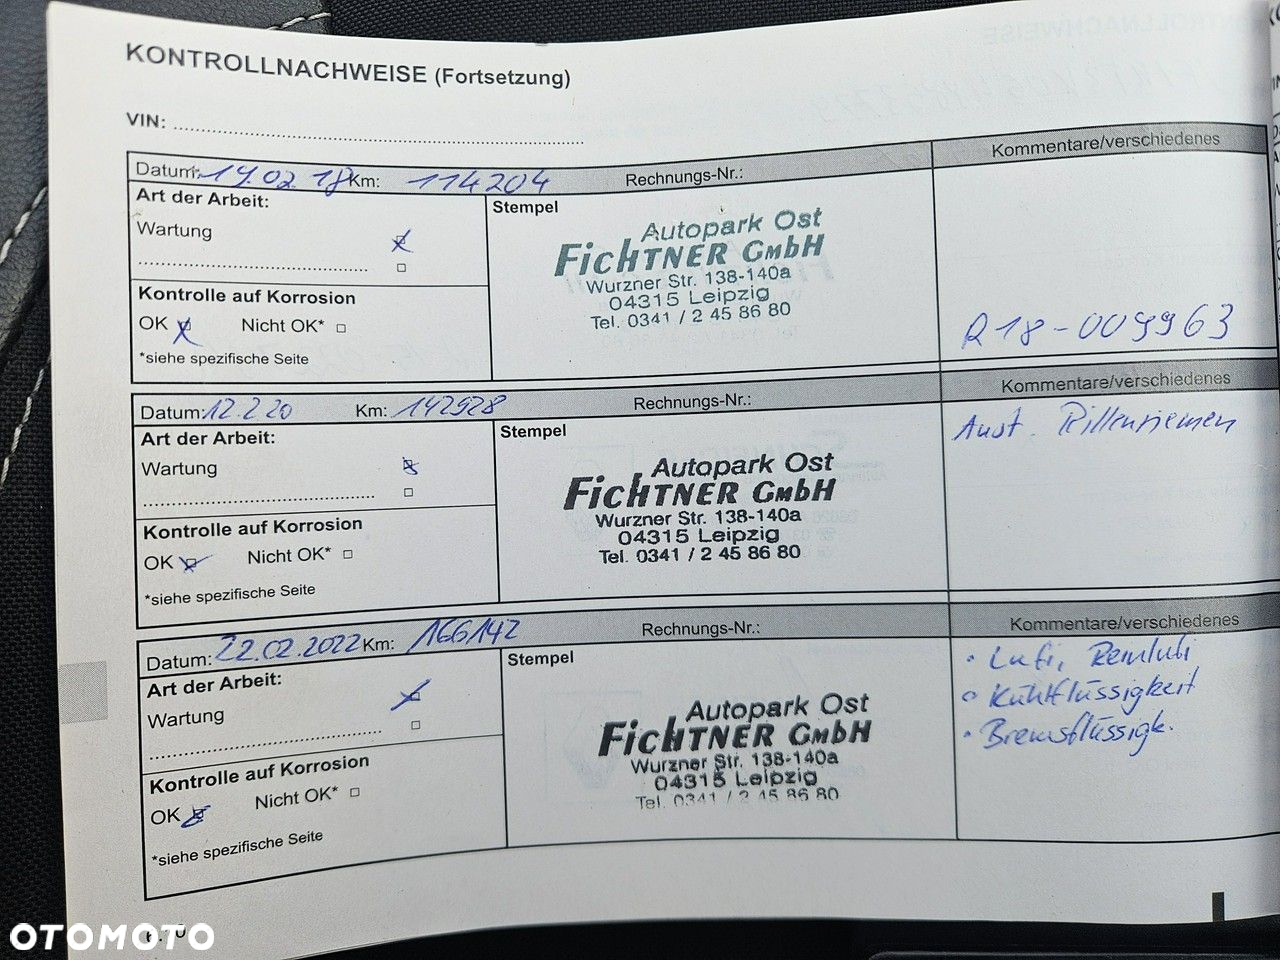 KONTROLLNACHWEISE (Fortsetzung)
VIN:
Datum: 19.02.18 Km: 114204 Rechnungs-Nr.: Kommentare/verschiedenes
Art der Arbeit:
Stempel
Wartung
Autopark Ost
FichTNER GmbH
Wurzner Str. 138-140a
04315 Leipzig
Tel. 0341 / 2 45 86 80
R18-009963
Kontrolle auf Korrosion
OK Nicht OK*
*siehe spezifische Seite
Datum: 12.2.20 Km: 142928 Rechnungs-Nr.: Kommentare/verschiedenes
Art der Arbeit:
Stempel
Aust. Rillenriemen
Wartung
Autopark Ost
FichTNER GmbH
Wurzner Str. 138-140a
04315 Leipzig
Tel. 0341 / 2 45 86 80
Kontrolle auf Korrosion
OK Nicht OK*
*siehe spezifische Seite
Datum: 22.02.2022 Km: 166142 Rechnungs-Nr.: Kommentare/verschiedenes
Art der Arbeit:
Stempel
• Lufi,
• Kühlflüssigkeit
• Bremsflüssigk.
Wartung
Autopark Ost
FichTNER GmbH
Wurzner Str. 138-140a
04315 Leipzig
Tel. 0341 / 2 45 86 80
Kontrolle auf Korrosion
OK Nicht OK*
*siehe spezifische Seite
OTOMOTO